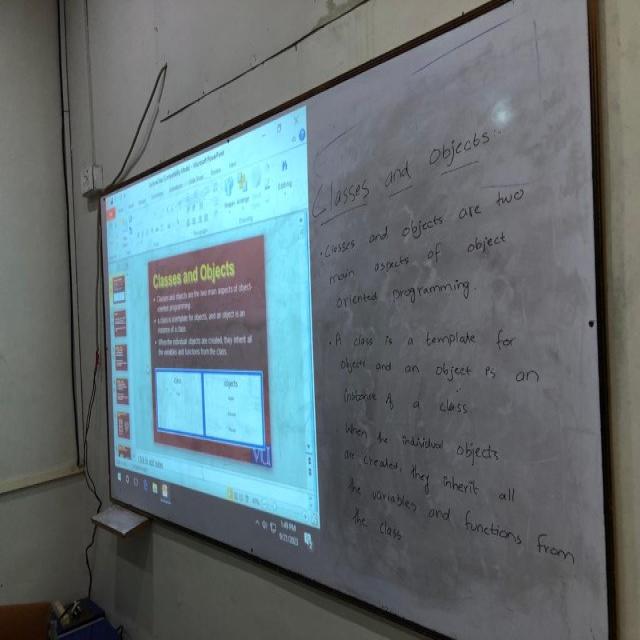 Microsoft PowerPoint
Editing
Classes and Objects
Classes and objects are the two main aspects of object-
oriented programming.
for objects, and an object is an
instance of a class.
When the individual objects are created, they inherit all
the variables and functions from the class.
Class
Objects
Click to add notes
1:49 PM
Classes and Objects
Classes and objects are two
main aspects of object
oriented programming.
A class is a template for
object and an object is an
instance of a class
When the individual objects
are created, they inherit all
the variables and functions from
the class